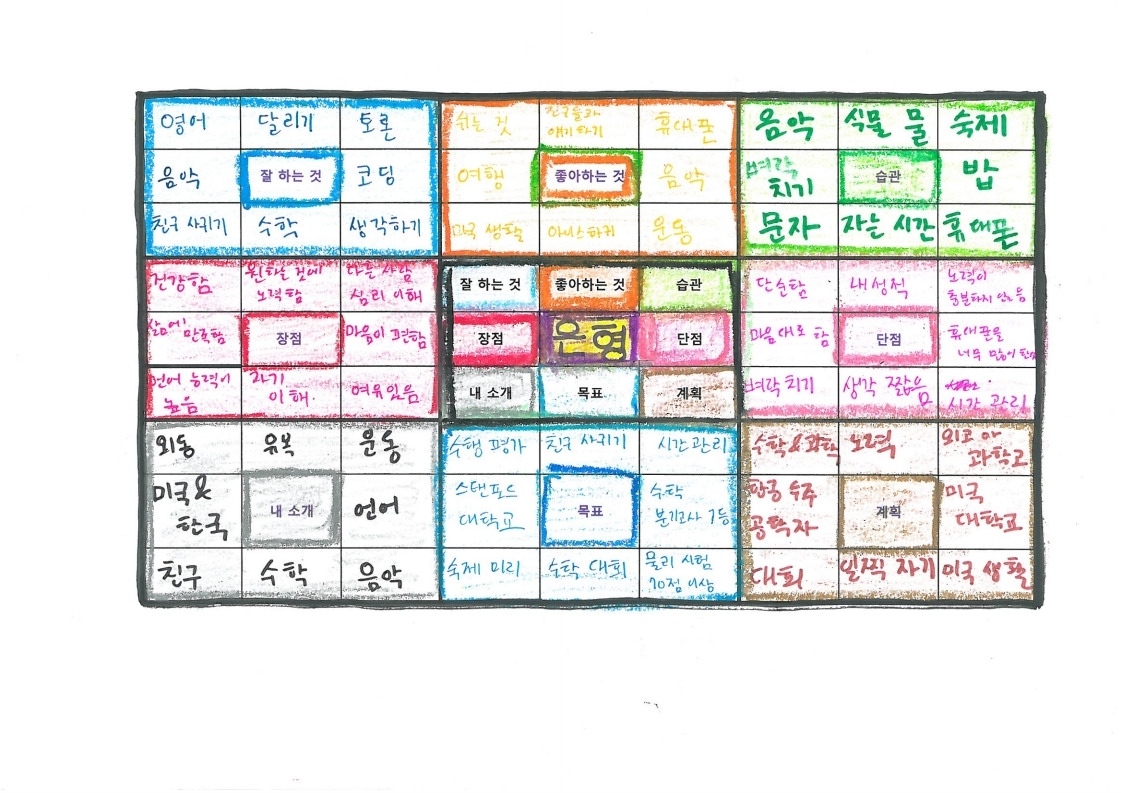 영어 달리기 토론
음악 잘 하는 것 코딩
친구 사귀기 수학 생각하기
쉬는 것 친구들과 얘기하기 휴대폰
여행 좋아하는 것 음악
미국 생활 아이스하키 운동
음악 식물 물 숙제
벼락치기 습관 밥
문자 자는 시간 휴대폰
건강함 원하는 것에 노력함 다른 사람 심리 이해
삶에 만족함 장점 마음이 편함
언어 능력이 높음 자기 이해 여유있음
잘 하는 것 좋아하는 것 습관
장점 은형 단점
내 소개 목표 계획
단순함 내성적 노력이 충분하지 않음
마음대로 함 단점 휴대폰을 너무 많이
벼락치기 생각 짧음 시간 관리
외동 유복 운동
미국 & 한국 내 소개 언어
친구 수학 음악
수행평가 친구 사귀기 시간관리
스탠포드 대학교 목표 수학 분기고사 1등
숙제 미리 수학 대회 물리 시험 70점 이상
수학&과학 노력 외고 아 과학고
항공 우주 공학자 계획 미국 대학교
대회 일찍 자기 미국 생활